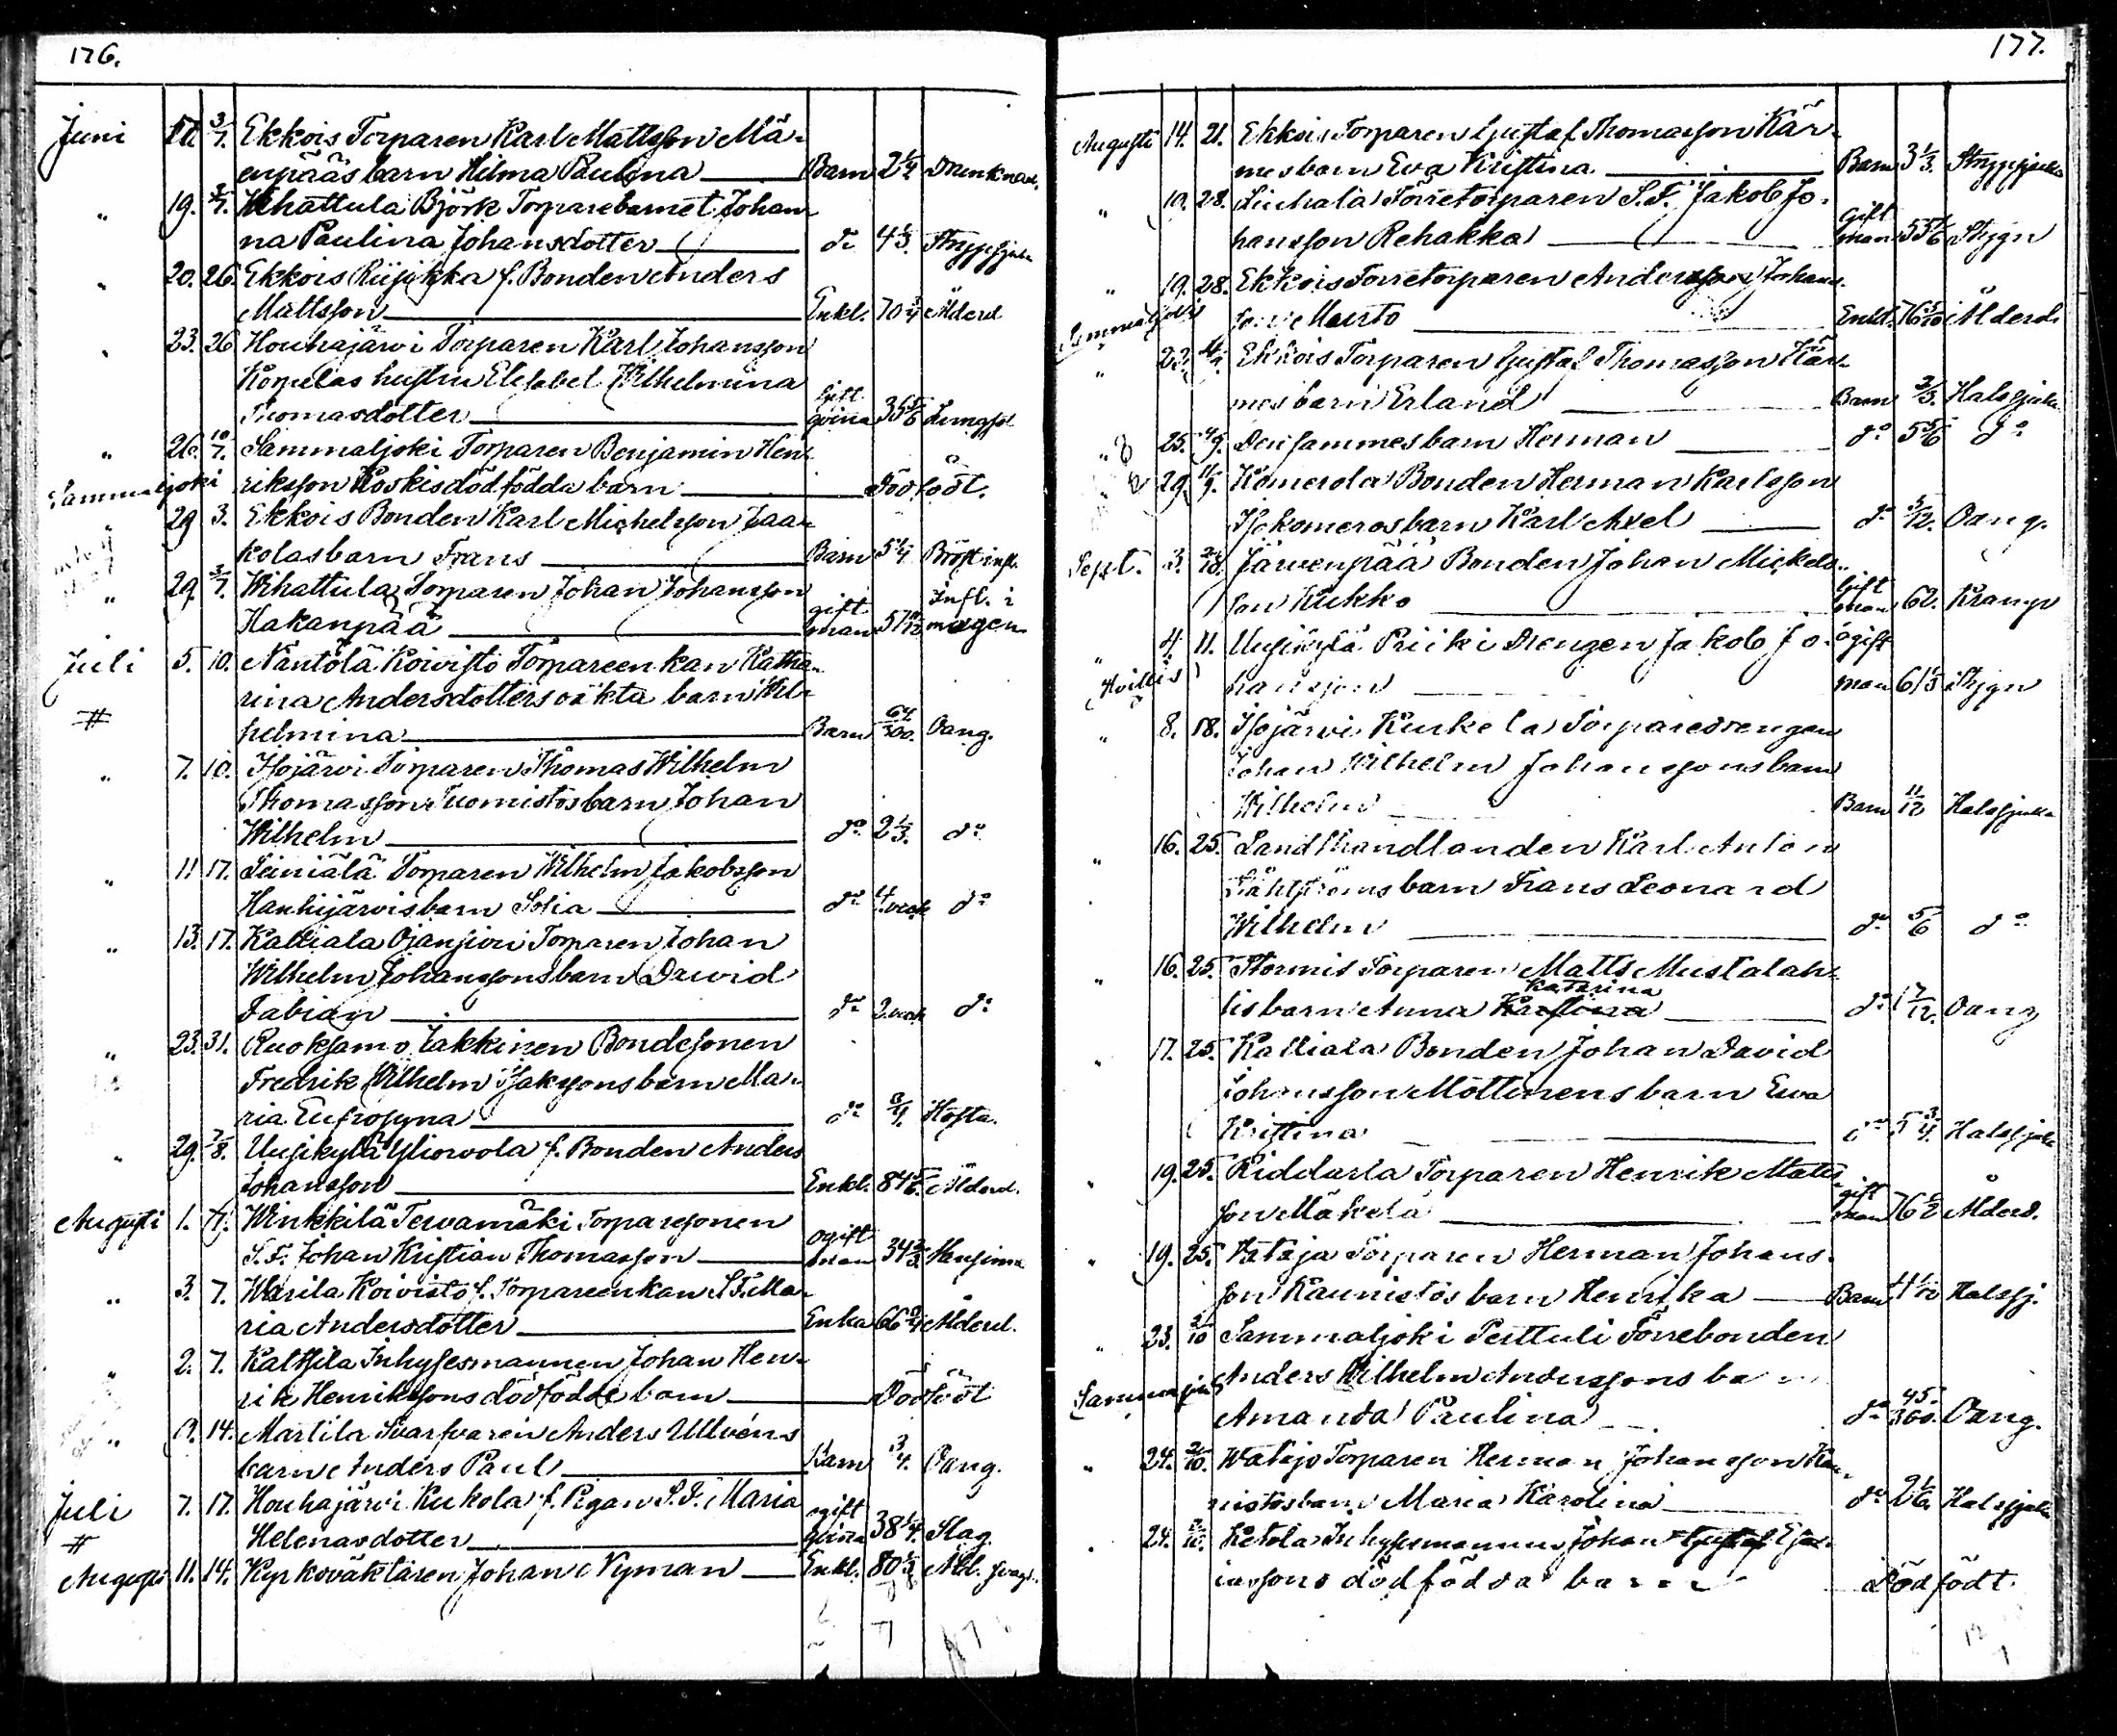 176.
Juni 3/7. Ekkois Torparen Karl Mattsson Mä-
enpääs barn Hilma Paulina Barn 2 1/4 Drunknad.
" 19. 3/7. Wihattula Björk Torparebarnet Johan-
na Paulina Johansdotter do 4 1/3. Strypsjuka
" 20. 26. Ekkois Riisikka f. Bonden Anders
Mattsson Enkl. 70 1/4 Ålderd.
" 23. 26 Houhajärvi Torparen Karl Johansson
hustru Elisabet Wilhelmina
Thomasdotter Gift qvina 35 5/6 Lungsot
" 26. 10/7. Sammaljoki Torparen Benjamin Hen-
Sammaljoki riksson Koskis dödfödda barn Dödfödt.
" 29 3. Ekkois Bonden Karl Michelsson Jaa-
kolas barn Frans Barn 5 1/4 Bröstinfl.
" 29. 3/7. Wihattula Torparen Johan Johansson
Hakanpää gift man 57 Infl. i magen
Juli 5. 10. Näntölä Koivisto Torpareenkan Katha-
rina Andersdotters oäkta barn Wil-
# helmina Barn 64/300. Oang.
" 7. 10. Isojärvi Torparen Thomas Wilhelm
Thomasson Tuomistos barn Johan
Wilhelm do 2 1/3. do
" 11 17. Leiniälä Torparen Wilhelm Jakobsson
Hanhijärvis barn Sofia do 4. veck do
" 13. 17. Kalliala Ojansivu Torparen Johan
Wilhelm Johanssons barn David
Fabian do 2 veck do
" 23. 31. Ruoksamo Jakkinen Bondesonen
Fredrik Wilhelm Isaksons barn Ma-
ria Eufrosyna do 3/4. Hosta.
" 29. 7/8. Uusikylä Yliorvola f. Bonden Anders
Johansson Enkl. 84 5/6. Ålderd.
Augusti 1. Winkkilä Tervamäki Torparesonen
S.F. Johan Kristian Thomasson ogift man 34 2/3.
" 3. 7. Warila Koivisto f. Torpareenkan S.F. Ma-
ria Andersdotter Enka 66 3/4 Ålderd.
" 2. 7. Kaltsila Inhysesmannen Johan Hen-
rik Henrikssons dödfödde barn Dödfödt
" 9. 14. Martila Svarfvaren Anders Ullvéns
barn Anders Paul Barn 3/4. Oang.
Juli 7. 17. Houhajärvi Kukola f. Pigan S.F. Maria
# Helenasdotter ogift qvina 38 1/4. Slag
Augusti 11. 14. Kyrkoväktaren Johan Nyman Enkl. 80 1/3
177.
Augusti 14. 21. Ekkois Torparen Gustaf Thomasson Kär-
mes barn Eva Kristina Barn 3 1/3. Strypsjuka
" 19. 28. Liuhala Förretorparen S.F. Jakob Jo-
hansson Rehakka gift man 55 1/6 Stygn
" 19. 28. Ekkois Förretorparen Andersson Johans-
Sammaljoki son Musto Enkl. 76 Ålderd.
" 22. 4/9. Ekkois Torparen Gustaf Thomasson Kär-
mes barn Erland Barn 2/3. Halssjuka
" 25. 4/9. Densammes barn Herman do 5 5/6 do
29. 11/9. Komerola Bonden Herman Karlsson
Isokomeros barn Karl Axel do 5/12. Oang.
Sept. 3. 2/10. Järvenpää Bonden Johan Mickels-
son Kukko Gift man 62. Kramp
" 4. 11. Uusikylä Priiki Drengen Jakob Jo-
Hvittis hansson ogift man 61 1/3 Stygn
" 8. 18. Isojärvi Kurkela Torparedrengen
Johan Wilhelm Johanssons barn
Wilhelm Barn 11/12 Halssjuka
" 16. 25. Landthandlanden Karl Anton
barn Frans Leonard
Wilhelm do 5/6 do
" 16. 25. Stormis Torparen Matts Mustalah-
Katarina
tis barn Anna Kristina do 1 7/12. Oang
" 17. 25. Kalliala Bonden Johan David
Johansson Mottinens barn Eva
Kristina do 5 3/4. Halssjuka
" 19. 25. Riddarla Torparen Henrik Matts-
son Mäkelä gift man 76 1/2 Ålderd.
" 19. 25. Vataja Torparen Herman Johans-
son Raunistos barn Henrika Barn 4 1/12 Halssj.
" 23. 2/10 Sammaljoki Perttuli Förrebonden
Sammaljoki Anders Wilhelm Anderssons barn
Amanda Paulina do 45/300. Oang.
" 24. 2/10. Wataja Torparen Herman Johansson Rau-
nistos barn Maria Karolina do 2 1/6. Halssjuka
" 24. 2/10. Ketola Inhysesmannen Johan Gustaf Esa-
iassons dödfödda barn Dödfödt.